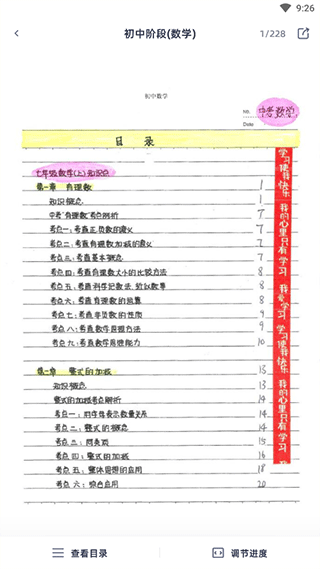 9:26
初中阶段(数学)
1/228
初中数学
No.
中考数学
Date
目 录
七年级数学(上)知识点
第一章 有理数 1
知识概念 1
中考有理数考点剖析 7
考点一:考查正负数的意义 7
考点二:考查有理数加减的意义 7
考点三:考查基本概念 7
考点四:考查有理数大小的比较方法 8
考点五:考查科学记数法、 8
考点六:考查有理数的运算 8
考点七:考查非负数的性质 9
考点八:考查数学思想方法 9
考点九:考查数学思维能力 10
第二章 整式的加减 13
知识概念 13
整式的加减考点解析 14
考点一:用字母表示数量关系 14
考点二:整式的概念 14
考点三:同类项 15
考点四:整式的加减 16
考点五:整体思想的应用 18
考点六:综合应用 20
学习使我快乐 我的心里只有学习 我爱学习 学习使我快乐 我的心里只有学习
查看目录
调节进度